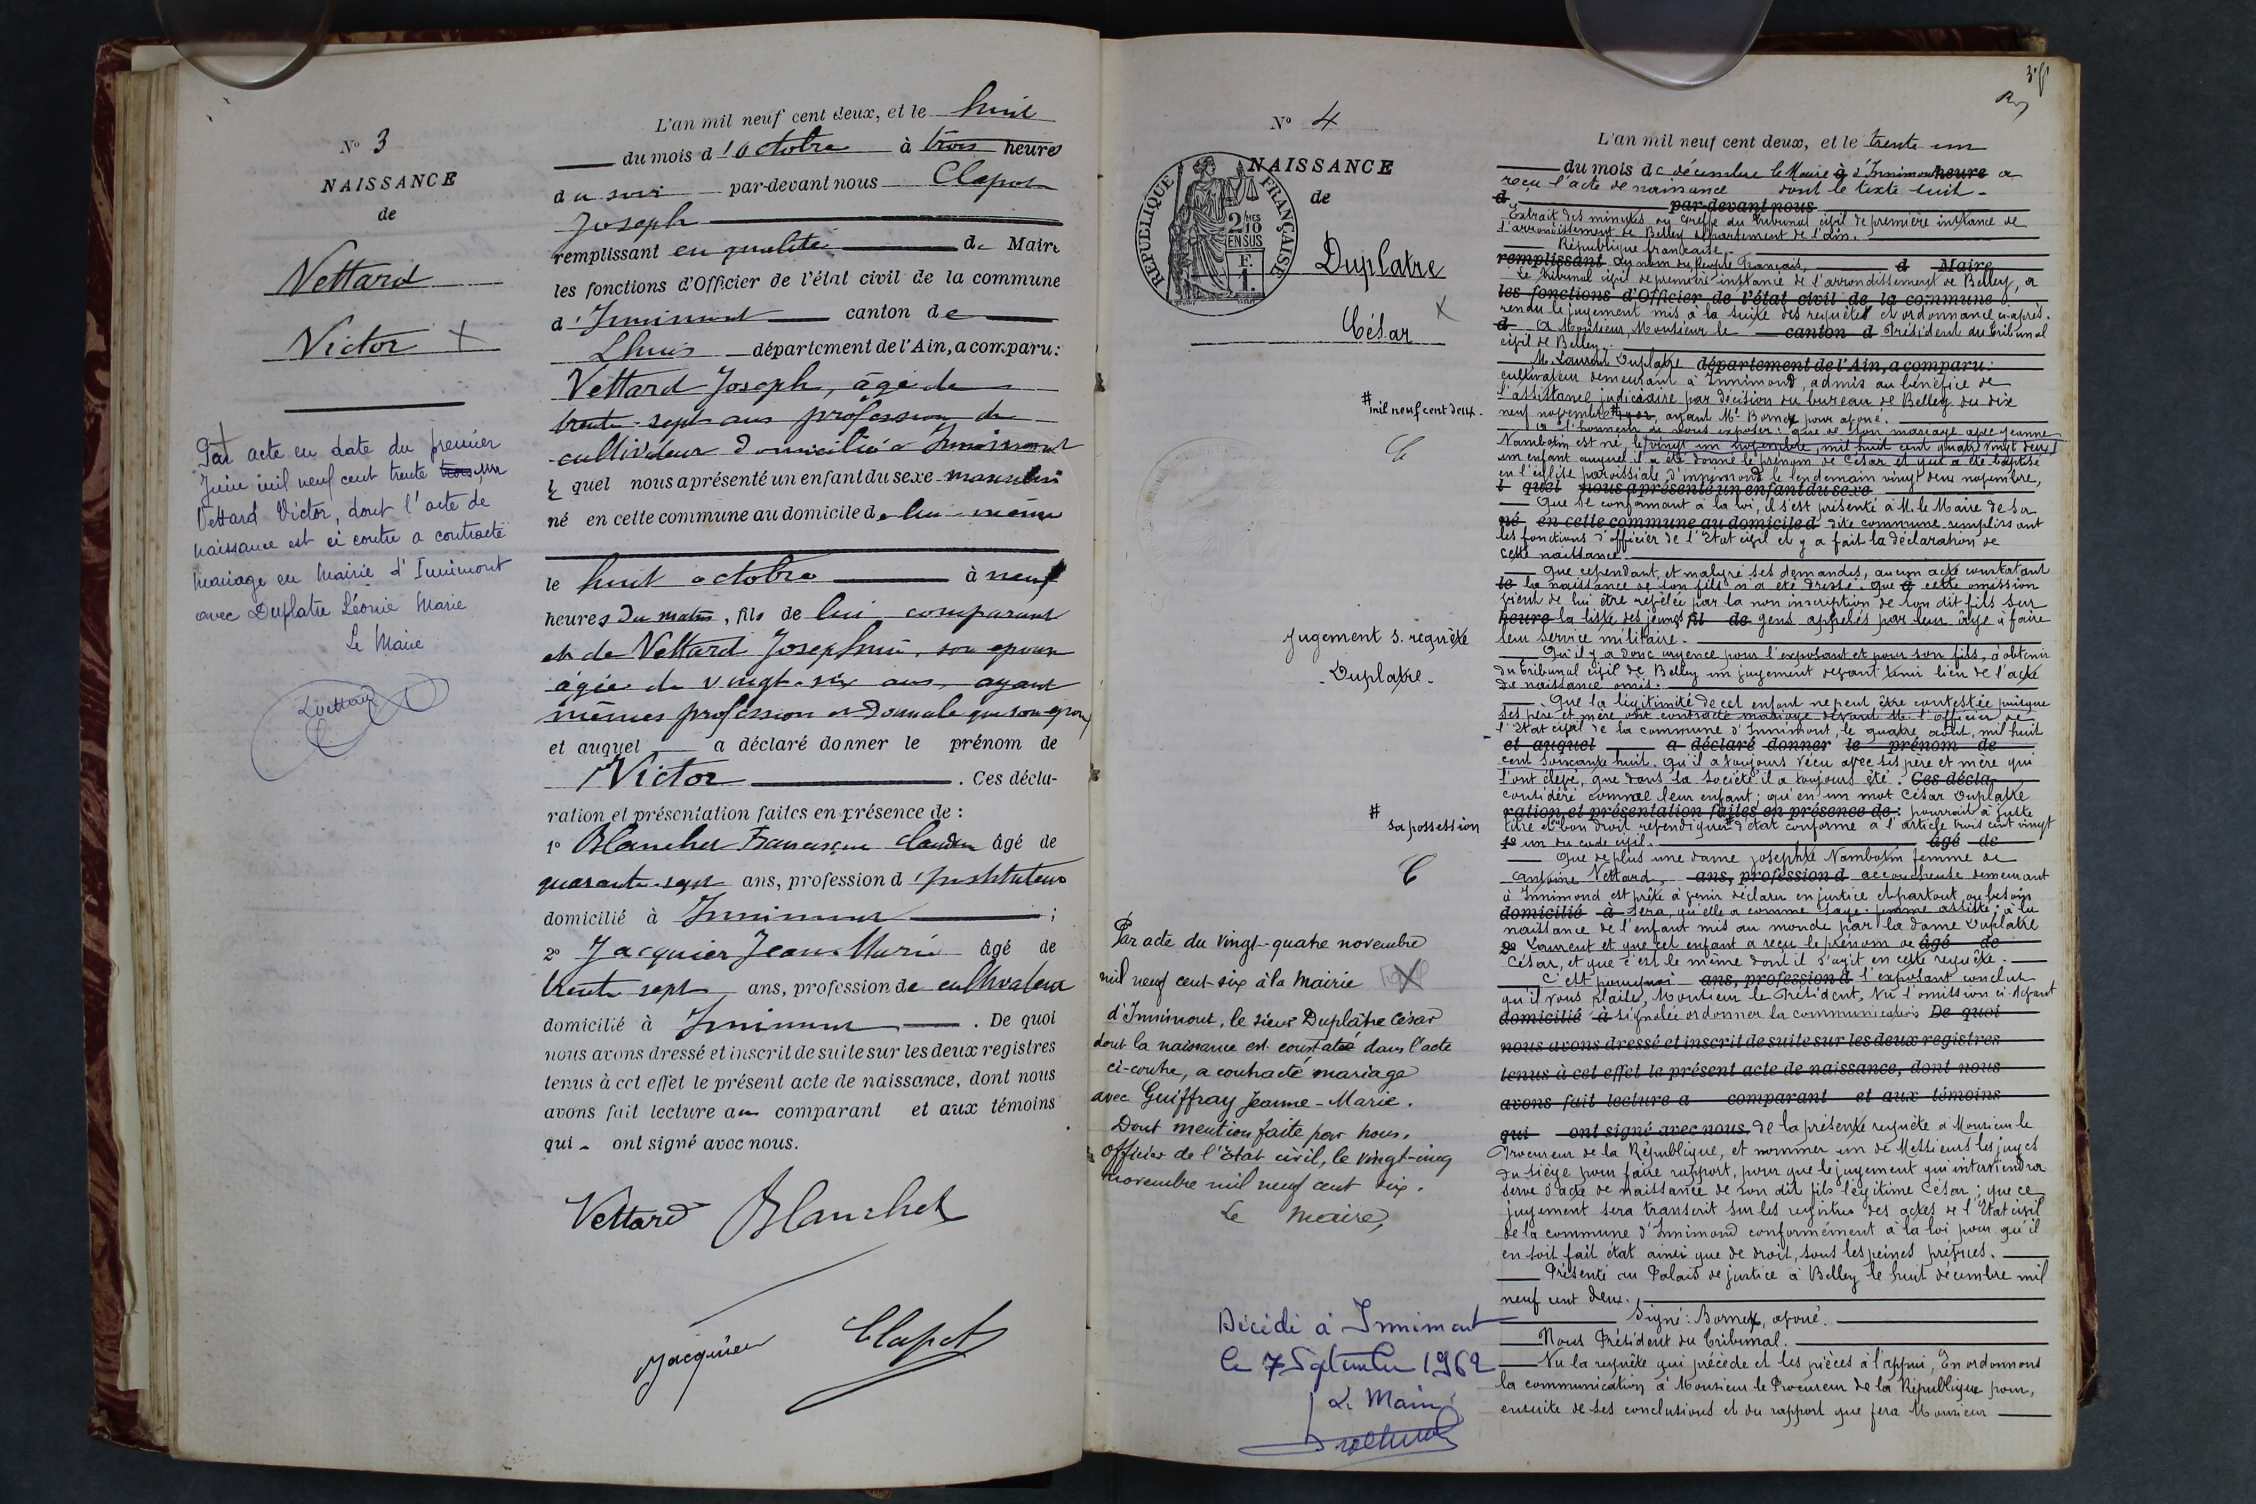 N° 3
NAISSANCE
de
Vettard
Victor
Par acte en date du premier
Juin mil neuf cent trente trois un
Vettard Victor, dont l'acte de
naissance est ci contre a contracté
mariage en Mairie d'Innimont
avec Duplatre Léonie Marie
Le Maire
L'an mil neuf cent deux, et le huit
du mois d'octobre à trois heures
du soir par-devant nous Clapot
Joseph
remplissant en qualité de Maire
les fonctions d'Officier de l'état civil de la commune
d'Innimont canton de
Lhuis département de l'Ain, a comparu:
Vettard Joseph, âgé de
trente-sept ans profession de
cultivateur domicilié à Innimont
lequel nous a présenté un enfant du sexe masculin
né en cette commune au domicile de lui-même
le huit octobre à neuf
heures du matin, fils de lui comparant
et de Vettard Josephine, son épouse
âgée de vingt-six ans, ayant
mêmes profession et domicile que son époux
et auquel a déclaré donner le prénom de
Victor. Ces décla-
ration et présentation faites en présence de :
1° Blanchet Francisque Claudin âgé de
quarante-sept ans, profession d'Instituteur
domicilié à Innimont ;
2° Jacquier Jean-Marie âgé de
trente sept ans, profession de cultivateur
domicilié à Innimont. De quoi
nous avons dressé et inscrit de suite sur les deux registres
tenus à cet effet le présent acte de naissance, dont nous
avons fait lecture au comparant et aux témoins
qui ont signé avec nous.
Vettard Blanchet
Jacquier Clapot
N° 4
NAISSANCE
de
RÉPUBLIQUE FRANÇAISE
2/10 EN SUS
F. 1.
Duplatre
César
# mil neuf cent deux.
C
Jugement s. requête
Duplatre
# sa possession
C
Par acte du vingt-quatre novembre
mil neuf cent six à la Mairie
d'Innimont, le sieur Duplâtre César
dont la naissance est constatée dans l'acte
ci-contre, a contracté mariage
avec Guiffray Jeanne-Marie.
Dont mention faite par nous,
officier de l'Etat civil, le vingt-cinq
novembre mil neuf cent six.
Le Maire,
Décédé à Innimont
le 7 Septembre 1962
Le Maire
L'an mil neuf cent deux, et le trente un
du mois de décembre le Maire à d'Innimont heure a
reçu l'acte de naissance dont le texte suit.
d par-devant nous
Extrait des minutes au Greffe du tribunal civil de première instance de
l'arrondissement de Belley département de l'Ain.
République française.
remplissant Au nom du Peuple Français, d Maire
Le tribunal civil de première instance de l'arrondissement de Belley, a
les fonctions d'Officier de l'état civil de la commune
rendu le jugement mis à la suite des requête et ordonnance ci-après.
d A Monsieur, Monsieur le canton d Président du tribunal
civil de Belley.
M. Laurent Duplatre département de l'Ain, a comparu:
cultivateur demeurant à Innimond, admis au bénéfice de
l'assistance judiciaire par décision du bureau de Belley du dix
neuf novembre # ayant Me Bornex pour avoué.
a l'honneur de vous exposer: que de son mariage avec Jeanne
Nambotin est né, le vingt un novembre, mil huit cent quatre vingt deux
un enfant auquel il a été donné le prénom de César et qui a été baptisé
en l'église paroissiale d'Innimond le lendemain vingt deux novembre,
l quel nous a présenté un enfant du sexe
Que se conformant à la loi, il s'est présenté à M. le Maire de sa
né en cette commune au domicile d dite commune remplissant
les fonctions d'officier de l'Etat civil et y a fait la déclaration de
cette naissance.
Que cependant, et malgré ses demandes, aucun acte constatant
le la naissance de son fils n'a été dressé. Que cette omission
vient de lui être révélée par la non inscription de son dit fils sur
heure la liste des jeunes fil de gens appelés par leur âge à faire
leur service militaire.
Qu'il y a donc urgence pour l'exposant et pour son fils, d'obtenir
du tribunal civil de Belley un jugement devant tenir lieu de l'acte
de naissance omis.
Que la légitimité de cet enfant ne peut être contestée puisque
ses père et mère ont contracté mariage devant M. l'officier de
l'Etat civil de la commune d'Innimont, le quatre août, mil huit
et auquel a déclaré donner le prénom de
cent soixante huit. Qu'il a toujours vécu avec ses père et mère qui
l'ont élevé, que dans la société il a toujours été. Ces décla-
considéré comme leur enfant; qu'en un mot César Duplatre
ration et présentation faites en présence de: pourrait à juste
titre et bon droit revendiquer # d'état conforme à l'article trois cent vingt
1° un du code civil. âgé de
Que de plus une dame Josephte Nambotin femme de
Antoine Vettard, ans, profession d accoucheuse demeurant
à Innimond est prête à venir déclarer en justice et partout où besoin
domicilié à sera, qu'elle a comme sage-femme assisté à la
naissance de l'enfant mis au monde par la dame Duplatre
2° Laurent et que cet enfant a reçu le prénom de âgé de
César, et que c'est le même dont il s'agit en cette requête.
C'est pourquoi ans, profession d l'exposant conclut
qu'il vous plaise, Monsieur le Président, Vu l'omission ci-devant
domicilié à signalée ordonner la communication De quoi
nous avons dressé et inscrit de suite sur les deux registres
tenus à cet effet le présent acte de naissance, dont nous
avons fait lecture a comparant et aux témoins
qui ont signé avec nous. de la présente requête à Monsieur le
Procureur de la République, et nommer un de Messieurs les juges
du siège pour faire rapport, pour que le jugement qui interviendra
serve d'acte de naissance de son dit fils légitime César; que ce
jugement sera transcrit sur les registres des actes de l'Etat civil
de la commune d'Innimond conformément à la loi pour qu'il
en soit fait état ainsi que de droit, sous les peines prévues.
Présenté au Palais de justice à Belley le huit décembre mil
neuf cent deux.
Signé: Bornex, avoué.
Nous Président du Tribunal.
Vu la requête qui précède et les pièces à l'appui, En ordonnons
la communication à Monsieur le Procureur de la République pour,
ensuite de ses conclusions et du rapport que fera Monsieur